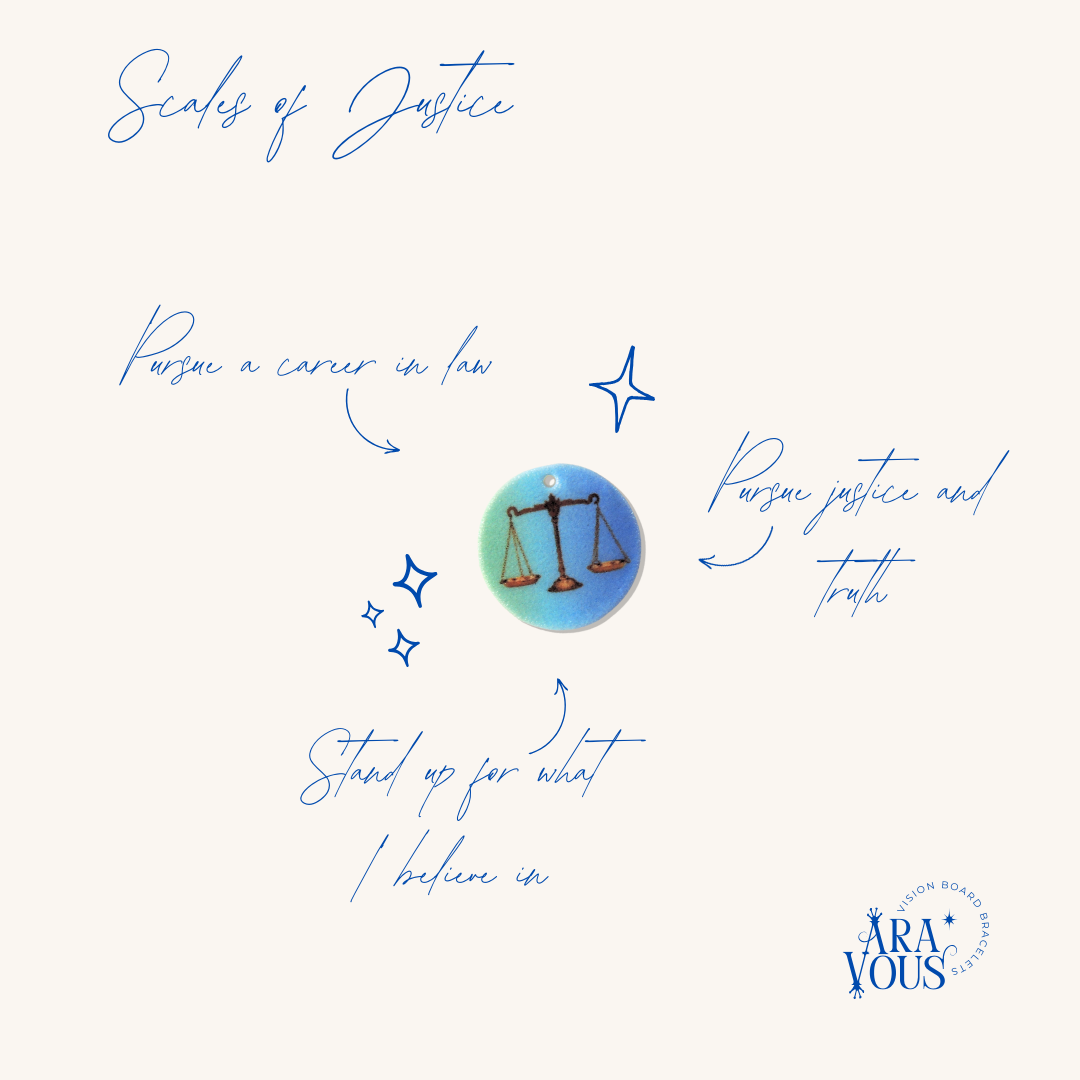 Scales of Justice
Pursue a career in law
Pursue justice and
truth
Stand up for what
I believe in
VISION BOARD BRACELETS
ARA
VOUS